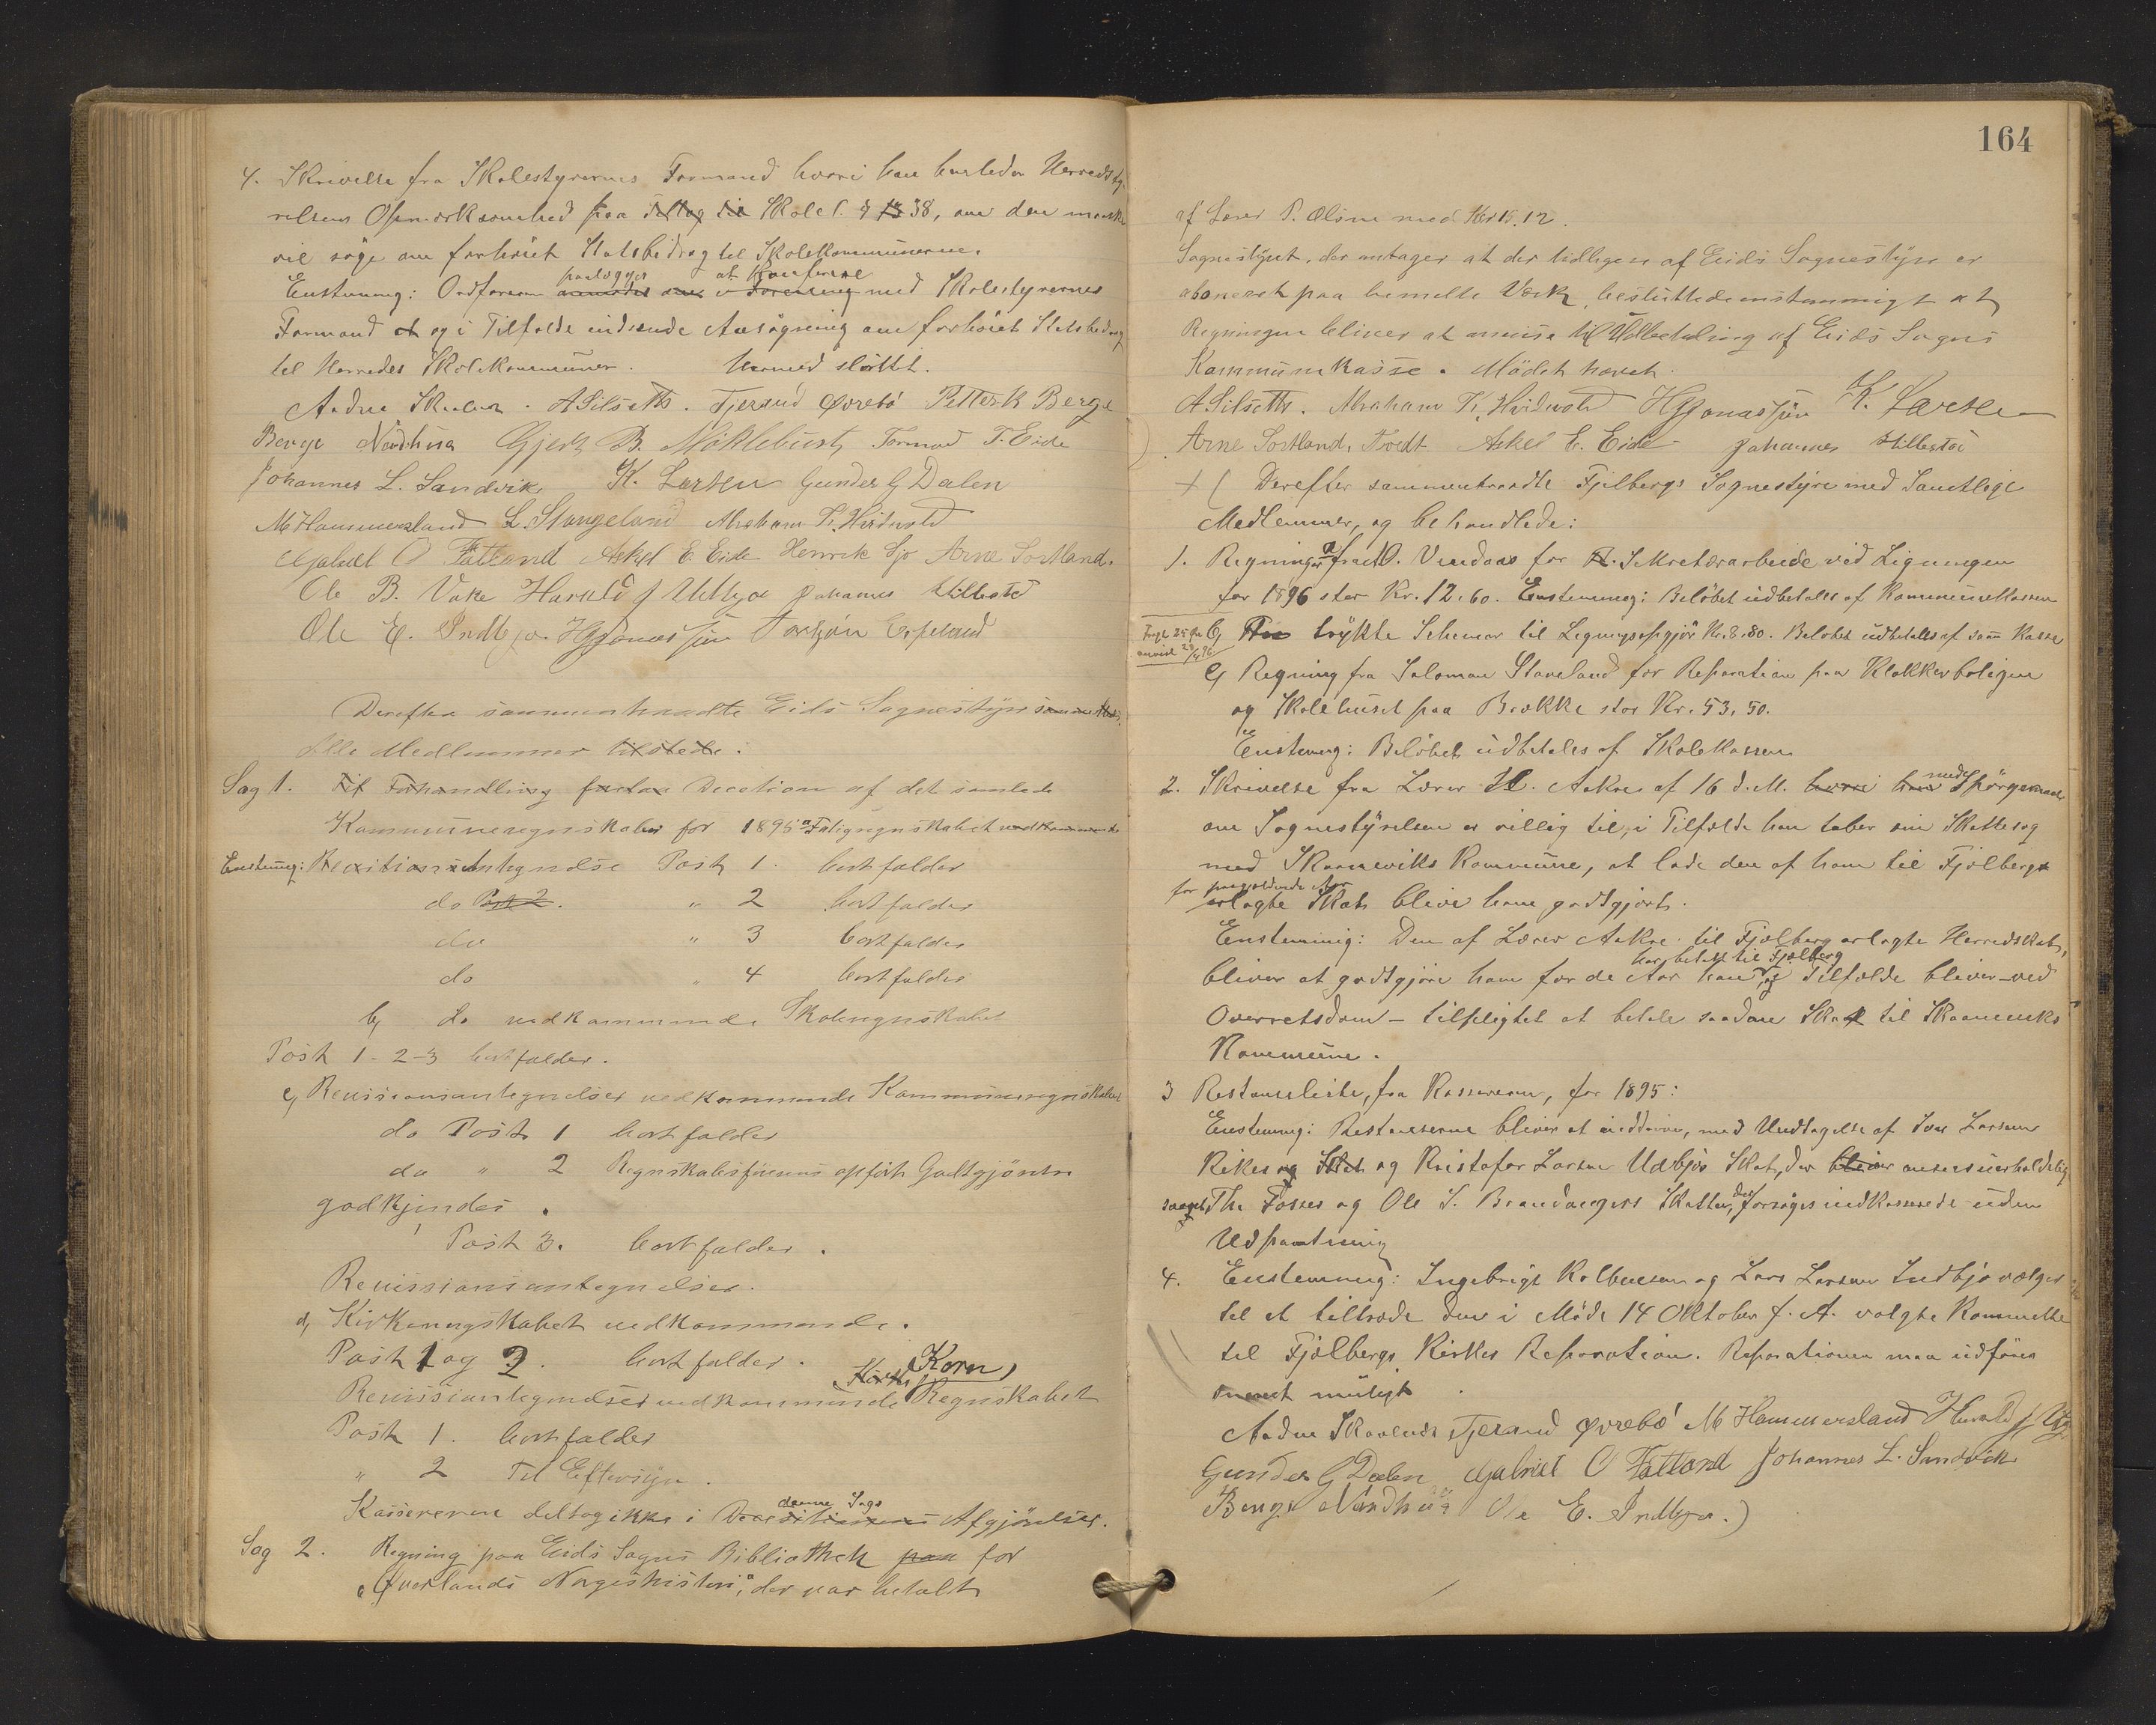 4. Skrivelse fra Skolestyrernes Formand hvori han henleder Herredsty-
relsens Opmærksomhed paa Skolel. § 38, om den maaske
vil søge om forhöiet Statsbidrag til Skolekommunerne.
paalægges at konferere
Enstemmig: Ordföreren med Skolestyrernes
Formand og i Tilfælde indsende Ansögning om forhöiet Statsbidrag
til Herredets Skolekommuner. Hermed sluttet.
Aadne Skaaluren. A Silseth. Tjerand Øvrebö Petter K Berge
Berge Nerdhuse Gjert B. Möklebust, Tormod T. Eide
Johannes L. Sandvik K. Larsen Gunder G Dalen
M Hammersland L. Stangeland Abraham T. Hvidevold
Gabriel O Fatland Askel E. Eide Henrik Sjo Arne Sortland.
Ole B. Vake Harald J Utbjoe Johannes Stillestö
Ole E. Indbjo. H Jonassen Torbjörn Espeland
Derefter sammentraadte Eids Sognestyre
Alle Medlemmer tilstede.
Sag 1. Decetion af det samlede
Kommuneregnskaber for 1895 a Fatigregnskabet
Enstemig: Post 1. bortfalder
do Post 2. " 2 bortfalder
do " 3 bortfalder
do " 4 bortfalder
b, do vedkommende Skoleregnskabet
Post 1-2-3 bortfalder.
c, Revisionsantegnelser vedkommende Kommuneregnskabet
do Post 1 bortfalder
do " 2 Regnskabsförerens opförte Godtgjörelse
godkjendes.
Post 3. bortfalder.
Revissionsantegnelser.
d, Kirkeregnskabet vedkommende.
Post 1 og 2. bortfalder.
(Korn)
Revissiantegnelser vedkommende Regnskabet
Post 1. bortfalder
" 2 Til Eftersyn.
denne Sags
Kassereren deltog ikke i Afgjörelser.
Sag 2. Regning paa Eids Sogns Bibliothek paa for
"Överlands Norgeshistorie", der var betalt
164
af Lærer P. Ølsne med Kr 18.12.
Sognestyret, der antager at der tidligere af Eids Sognestyre er
aboneret paa bemelte Værk, besluttede enstemmigt at
Regningen bliver at anvise til Udbetaling af Eids Sogns
Kommunekasse. Mödet hævet.
A Silseth. Abraham T. Hvidevold H Jonassen K. Larsen
Arne Sortland, Tvedt Askel E. Eide Johannes Stillestöe
+( Derefter sammentraadte Fjelbergs Sognestyre med Samtlige
Medlemmer, og behandlede:
1. Regninger a, fra O. Vindaas for Sekretærarbeide ved Ligningen
for 1896 stor Kr. 12.60. Enstemmig: Belöbet udbetales af Kommunekassen
b, trykte Schemar til Ligningsopgjör Kr. 8.80. Belöbet udbetales af samme Kasse
c, Regning fra Salomon Staveland for Reparation paa Klokkerboligen
og Skolehuset paa Brække stor Kr. 53.50.
Enstemig: Belöbet udbetales af Skolekassen
2. Skrivelse fra Lærer H. Aakre af 16 d. M. med Spörgsmaal
om Sognestyrelsen er villig til, i Tilfælde han taber sin Skattesag
med Skaaneviks Kommune, at lade den af ham til Fjelberg
for paagjældende Aar
erlagte Skat blive ham godtgjort.
Enstemmig: Den af Lærer Aakre til Fjelberg erlagte Herredskat,
har betalt til Fjelberg
bliver at godtgjöre ham for de Aar han, og Tilfælde bliver - ved
Overretsdom - tilpligtet at betale saadan Skat til Skaaneviks
Kommune.
3 Restanseliste, fra Kassereren, for 1895:
Enstemmig: Restanserne bliver at inddrive, med Undtagelse af Ivar Larsen
Rikes og Kristofar Larsen Udbjos Skat, der ansees uerholdelig
samt Th. Fosses og Ole S. Brandvegers Skatter, der forsöges indkasserede uden
Udpantning
4. Enstemmig: Ingebrigt Kolbensen og Lars Larsen Indbjo vælges
til at tiltræde den i Möde 14 Oktober f. A. valgte Kommitte
til Fjelbergs Kirkes Reparation. Reparationen maa udföres
snarest muligt.
Aadne Skaaluren Tjerand Øvrebö M Hammersland Harald J Utbj
Gunder G Dalen Gabriel O Fatland Johannes L. Sandvik
Berge Nerdhuse Ole E. Indbjo.)